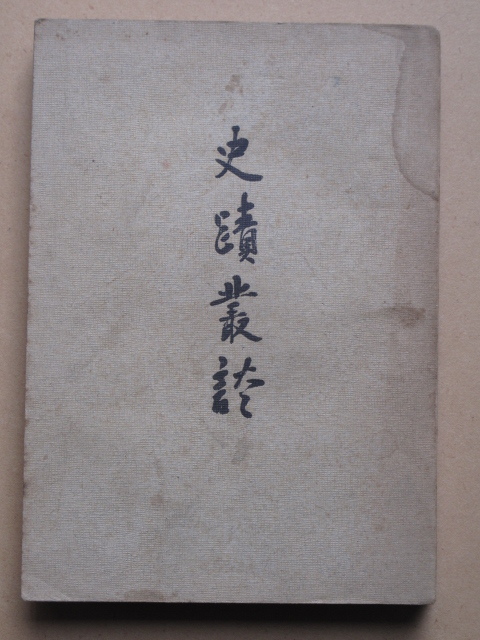 史蹟叢談